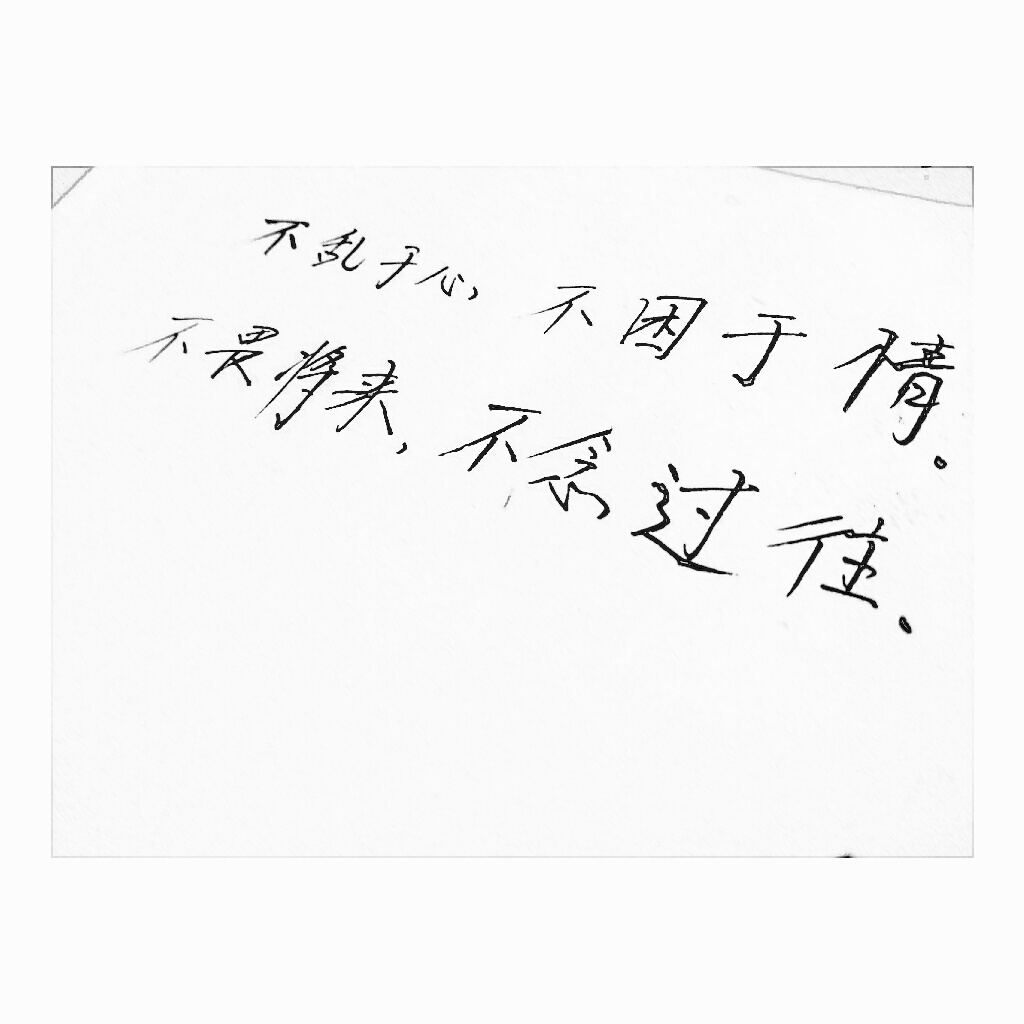 不乱于心,不困于情.
不畏将来,不念过往.